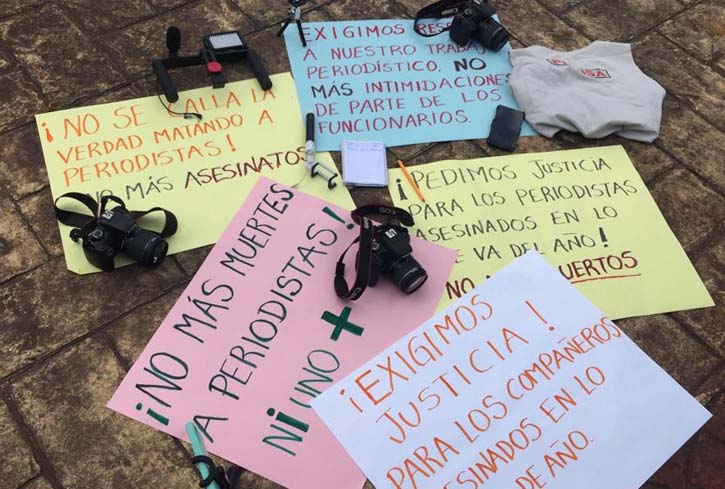 EXIGIMOS
A NUESTRO TRABAJO
PERIODÍSTICO, NO
MÁS INTIMIDACIONES
DE PARTE DE LOS
FUNCIONARIOS.
¡NO SE CALLA LA
VERDAD MATANDO A
PERIODISTAS!
NO MÁS ASESINATOS
¡PEDIMOS JUSTICIA
PARA LOS PERIODISTAS
ASESINADOS EN LO
VA DEL AÑO!
¡NO MÁS MUERTES
A PERIODISTAS!
NI UNO +
¡EXIGIMOS
JUSTICIA!
PARA LOS COMPAÑEROS
ASESINADOS EN LO
DE AÑO.